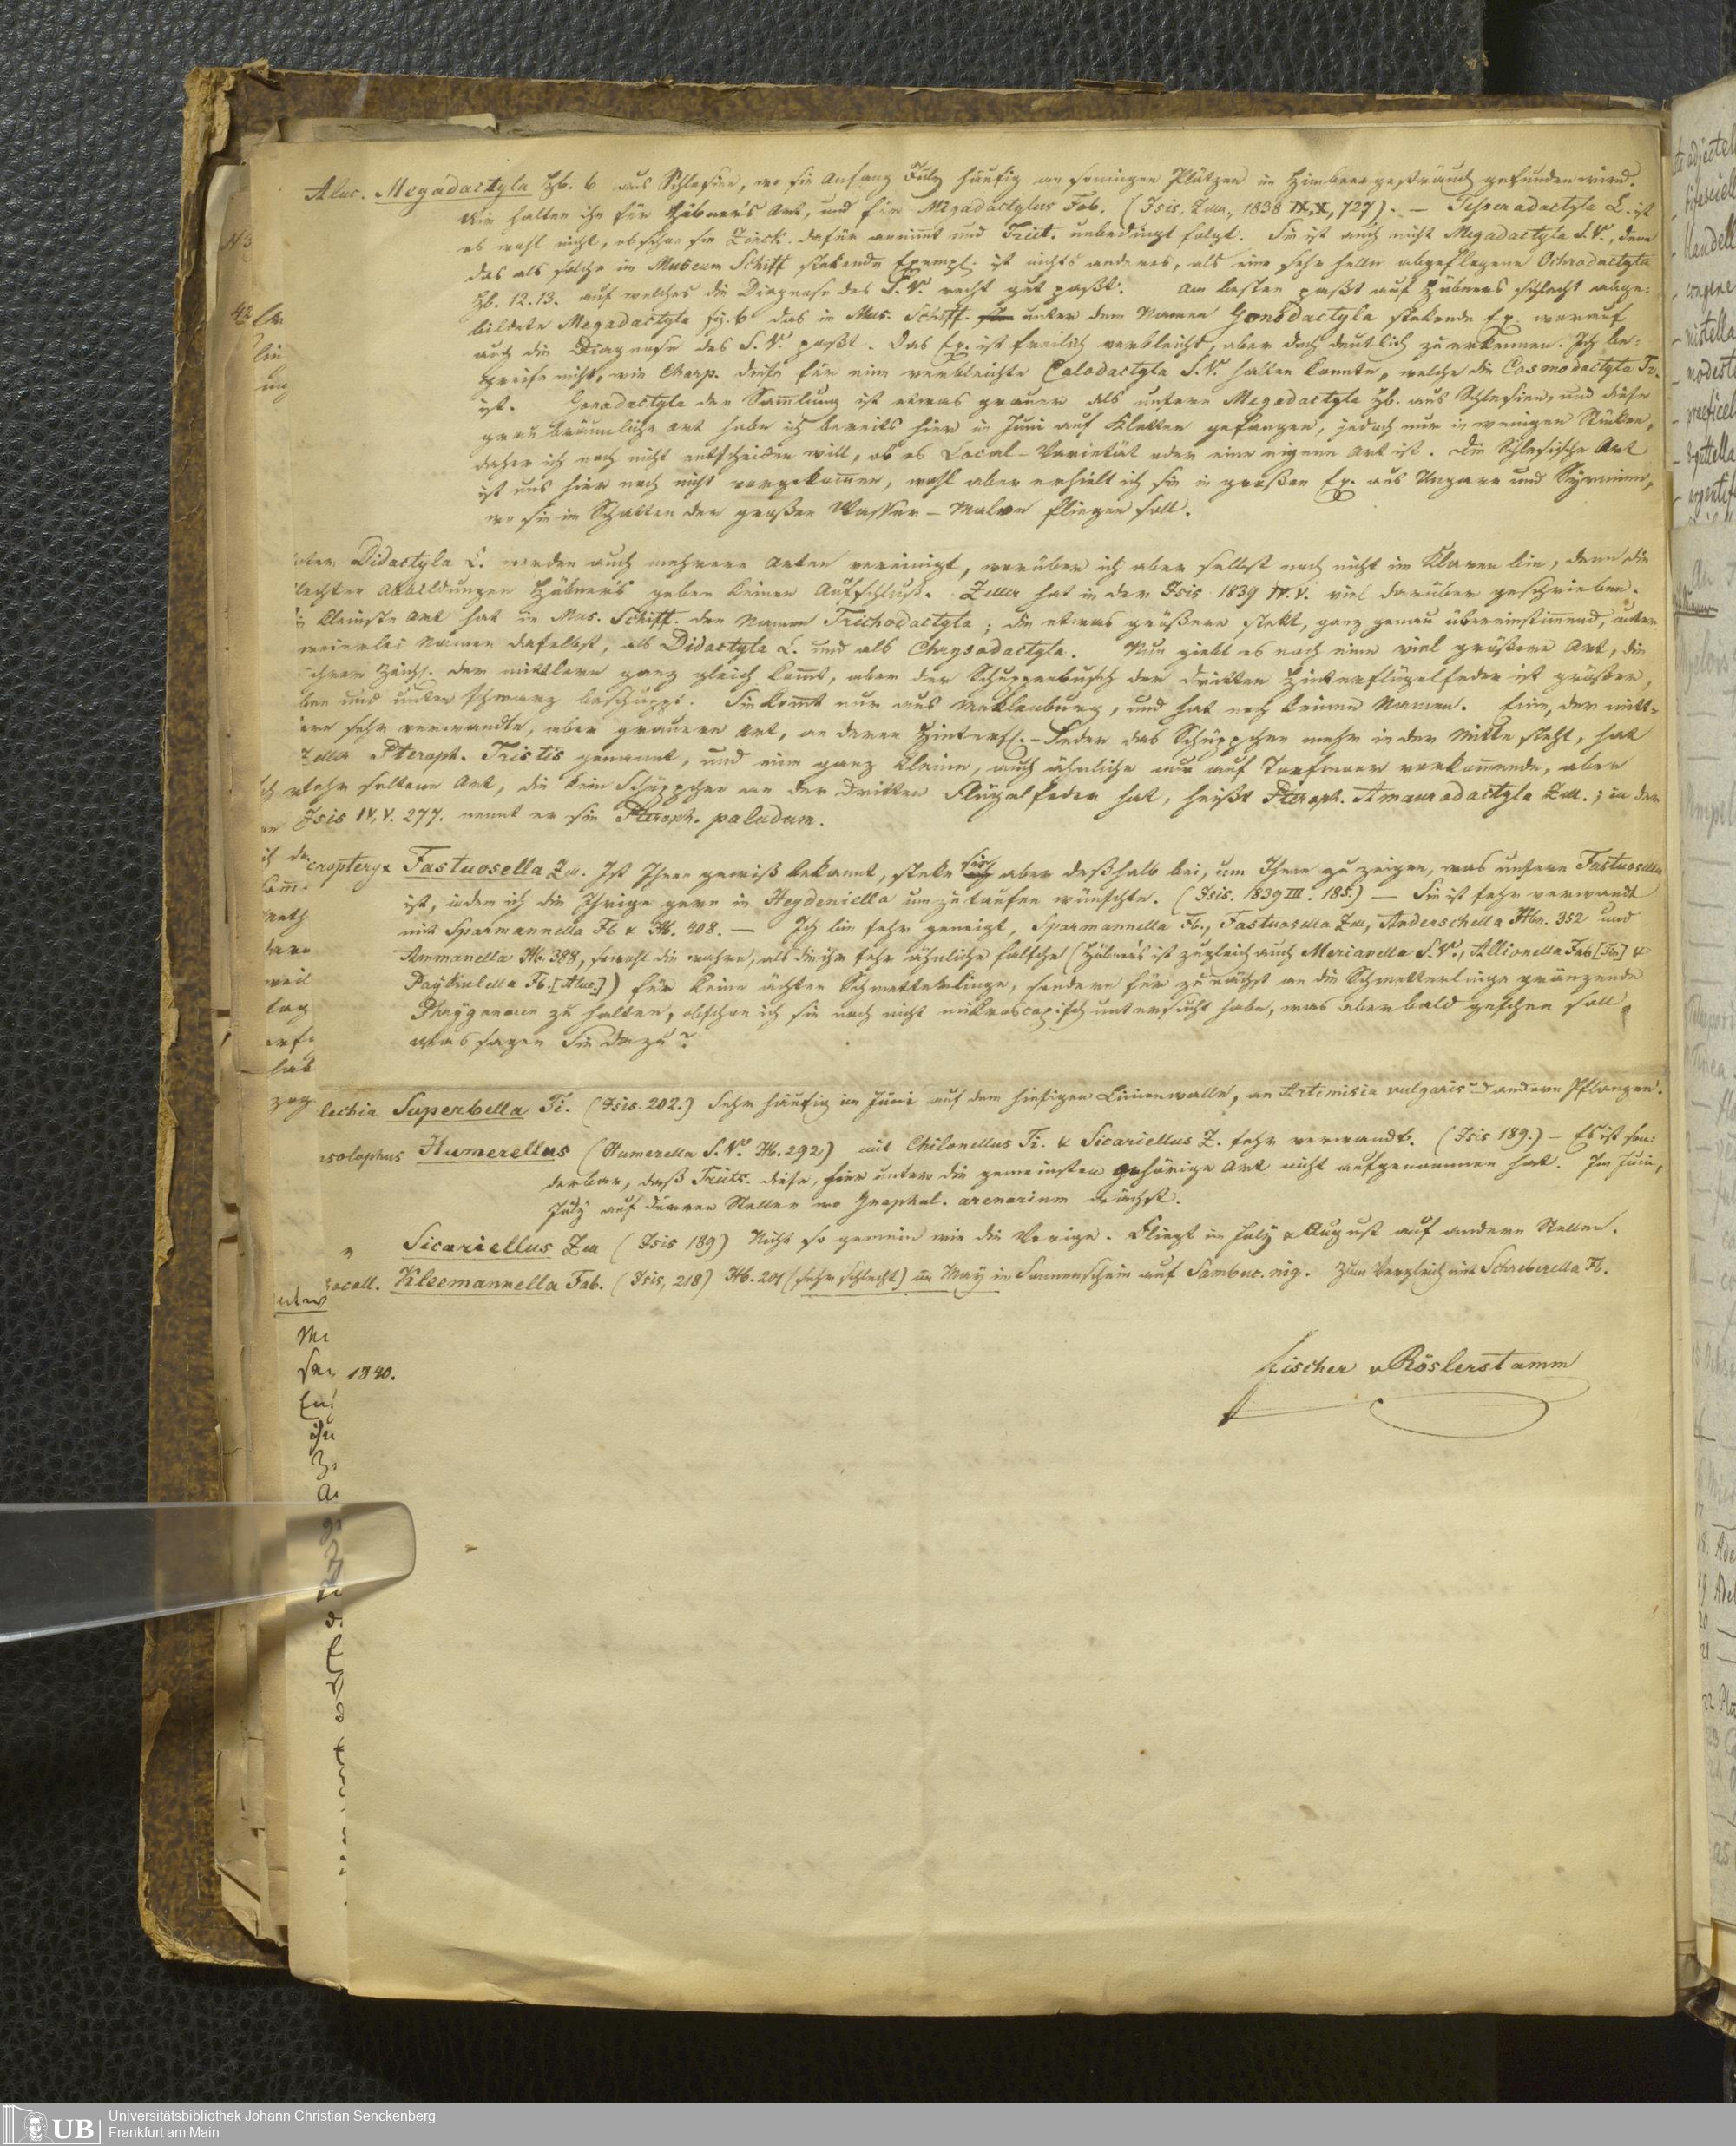 Aluc. Megadactyla Hb. 6 aus Schlesien, wo sie Anfang July häufig an sonnigen Plätzen im Himbeergesträuch gefunden wird.
Wir halten sie für Hübner's Art, und für Megadactylus Fab. (Isis, Zell., 1838 IX, X, 727). — Tesseradactyla L. ist
es wohl nicht, obschon sie Zinck. dafür annimt und Treit. unbedingt folgt. Sie ist auch nicht Megadactyla S.V., denn
das als solche im Museum Schiff stekende Exempl. ist nichts anderes, als eine sehr helle abgeflogene Ochrodactyla
Hb. 12.13. auf welches die Diagnose des S.V. recht gut paßt. Am besten paßt auf Hübners schlecht abge-
bildete Megadactyla fig. 6 das im Mus. Schiff. unter dem Namen Gonodactyla stekende Ex. worauf
auch die Diagnose des S.V. paßt. Das Ex. ist freilich verbleicht, aber doch deutlich zu erkennen. Ich be-
greife nicht, wie Charp. diese für eine verbleichte Calodactyla S.V. halten konnte, welche die Cosmodactyla Tr.
ist. Gonodactyla der Samlung ist etwas grauer als unsere Megadactyla Hb. aus Schlesien, und diese
graubräunliche Art habe ich bereits hier im Juni auf Kletten gefangen, jedoch nur in wenigen Stüken,
daher ich noch nicht entscheiden will, ob es Local-Varietät oder eine eigene Art ist. Die Schlesische Art
ist uns hier noch nicht vorgekomen, wohl aber erhielt ich sie in großen Ex. aus Ungarn und Syrmien,
wo sie im Schatten der großen Wasser-Malve fliegen soll.
Didactyla L. werden auch mehrere Arten vereinigt, worüber ich aber selbst noch nicht im Klaren bin, denn die
Abbildungen Hübner's geben keinen Aufschluß. Zeller hat in der Isis 1839 IV.V. viel darüber geschrieben.
kleinste Art hat im Mus. Schiff. den Namen Trichodactyla; die etwas größere stekt, ganz genau übereinstimend, unter
Namen daselbst, als Didactyla L. und als Chrysodactyla. Nun giebt es noch eine viel größere Art, die
der mittlern ganz gleich komt, aber der Schuppenbusch der dritten Hinterflügelfeder ist größer,
und unten schwarz beschuppt. Sie komt nur aus Meklenburg, und hat noch keinen Namen. Eine, der mitt-
sehr verwandte, aber grauere Art, an deren Hinterfl.-Feder das Schüppchen mehr in der Mitte steht, hat
Zeller Pteroph. Tristis genannt, und eine ganz kleine, auch ähnliche nur auf Torfmoor vorkomende, aber
seltene Art, die kein Schüppchen an der dritten Flügelfeder hat, heißt Pteroph. Amauradactyla Zell.; in der
Isis IV, V. 277. nennt er sie Pteroph. paludum.
cropteryx Fastuosella Zell. Ist Ihnen gewiß bekannt, steke sie aber deßhalb bei, um Ihnen zu zeigen, was unsere Fastuosella
ist, indem ich die Ihrige gern in Heydeniella umzutaufen wünschte. (Isis. 1839 III. 185.) — Sie ist sehr verwandt
mit Sparmannella Fb & Hb. 408. — Ich bin sehr geneigt, Sparmannella Fb., Fastuosella Zell., Anderschella Hbn. 352 und
Ammanella Hb. 388, sowohl die wahre, als die ihr sehr ähnliche falsche (Hübner's ist zugleich auch Merianella S.V., Allionella Fab [Tin] &
Paykulella Fb. [Aluc.]) für keine ächten Schmetterlinge, sondern für zunächst an die Schmetterlinge gränzende
Phryganeen zu halten, obschon ich sie noch nicht mikroscopisch untersucht habe, was aber bald geschen soll.
Was sagen Sie dazu?
lechia Superbella Ti. (Isis. 202.) Sehr häufig im Juni auf dem hiesigen Linienwalle, an Artemisia vulgaris und andern Pflanzen.
solophus Humerellus (Humerella S.V. Hb. 292) mit Chilonellus Ti. & Sicariellus Z. sehr verwandt. (Isis 189.) — Es ist son-
derbar, daß Treits. diese, hier unter die gemeinsten gehörige Art nicht aufgenommen hat. Im Juni,
July auf dürren Stellen wo Gnaphal. arenarium wächst.
" Sicariellus Zell (Isis 189) Nicht so gemein wie die Vorige. Fliegt im July & August auf andern Stellen.
ocall. Kleemannella Fab. (Isis, 218) Hb. 201 (sehr schlecht) im May im Sonnenschein auf Sambuc. nig. Zum Vergleich mit Schreberella Fb.
1840.
Fischer v Röslerstamm
UB Universitätsbibliothek Johann Christian Senckenberg
Frankfurt am Main